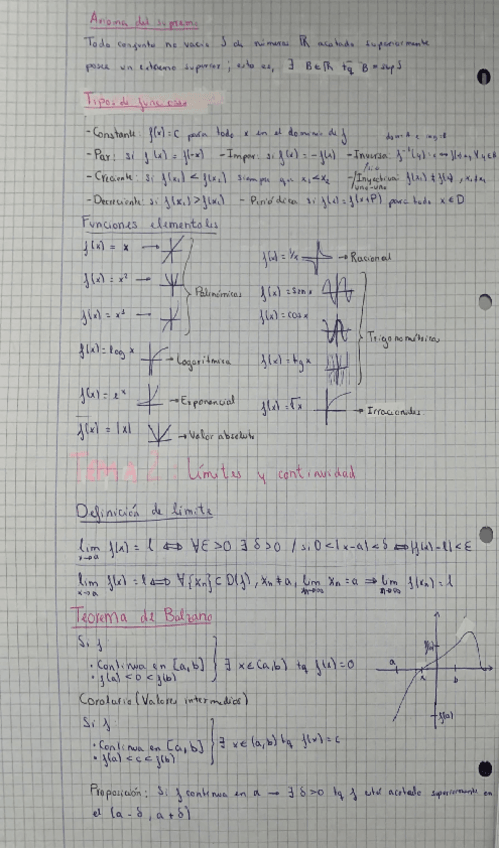 Axioma del supremo
Todo conjunto no vacío S de números ℝ acotado superiormente
posee un extremo superior; esto es, ∃ B∈ℝ tq B = sup S
Tipos de funciones
- Constante: f(x)=c para todo x en el dominio de f
- Par: si f(x) = f(-x) - Impar: si f(x) = -f(x) - Inversa: f⁻¹(y)
- Creciente: si f(x₁) < f(x₂) siempre que x₁<x₂ - Inyectiva: f(x₁) ≠ f(x₂), x₁≠x₂
uno-uno
- Decreciente: si f(x₁) > f(x₂) - Periódica si f(x) = f(x+P) para todo x∈D
Funciones elementales
f(x) = x
f(x) = x²
f(x) = x³
Polinómicas
f(x) = log x → Logarítmica
f(x) = eˣ → Exponencial
f(x) = |x| → Valor absoluto
f(x) = 1/x → Racional
f(x) = sin x
f(x) = cos x
f(x) = tg x
Trigonométricas
f(x) = √x → Irracionales
Tema 2: Límites y continuidad
Definición de límite
lim x→a f(x) = l ⇔ ∀ε>0 ∃ δ>0 / si 0<|x-a|<δ ⇔ |f(x)-l|<ε
lim x→a f(x) = l ⇔ ∀{xₙ}⊂D(f), xₙ≠a, lim n→∞ xₙ = a ⇒ lim n→∞ f(xₙ) = l
Teorema de Bolzano
Si f
• Continua en [a,b]
• f(a) < 0 < f(b)
∃ x∈(a,b) tq f(x)=0
a x b
f(b)
f(a)
Corolario (Valores intermedios)
Si f
• Continua en [a,b]
• f(a) < c < f(b)
∃ x∈(a,b) tq f(x)=c
Proposición: Si f continua en a → ∃ δ>0 tq f está acotado superiormente en
el (a-δ, a+δ)